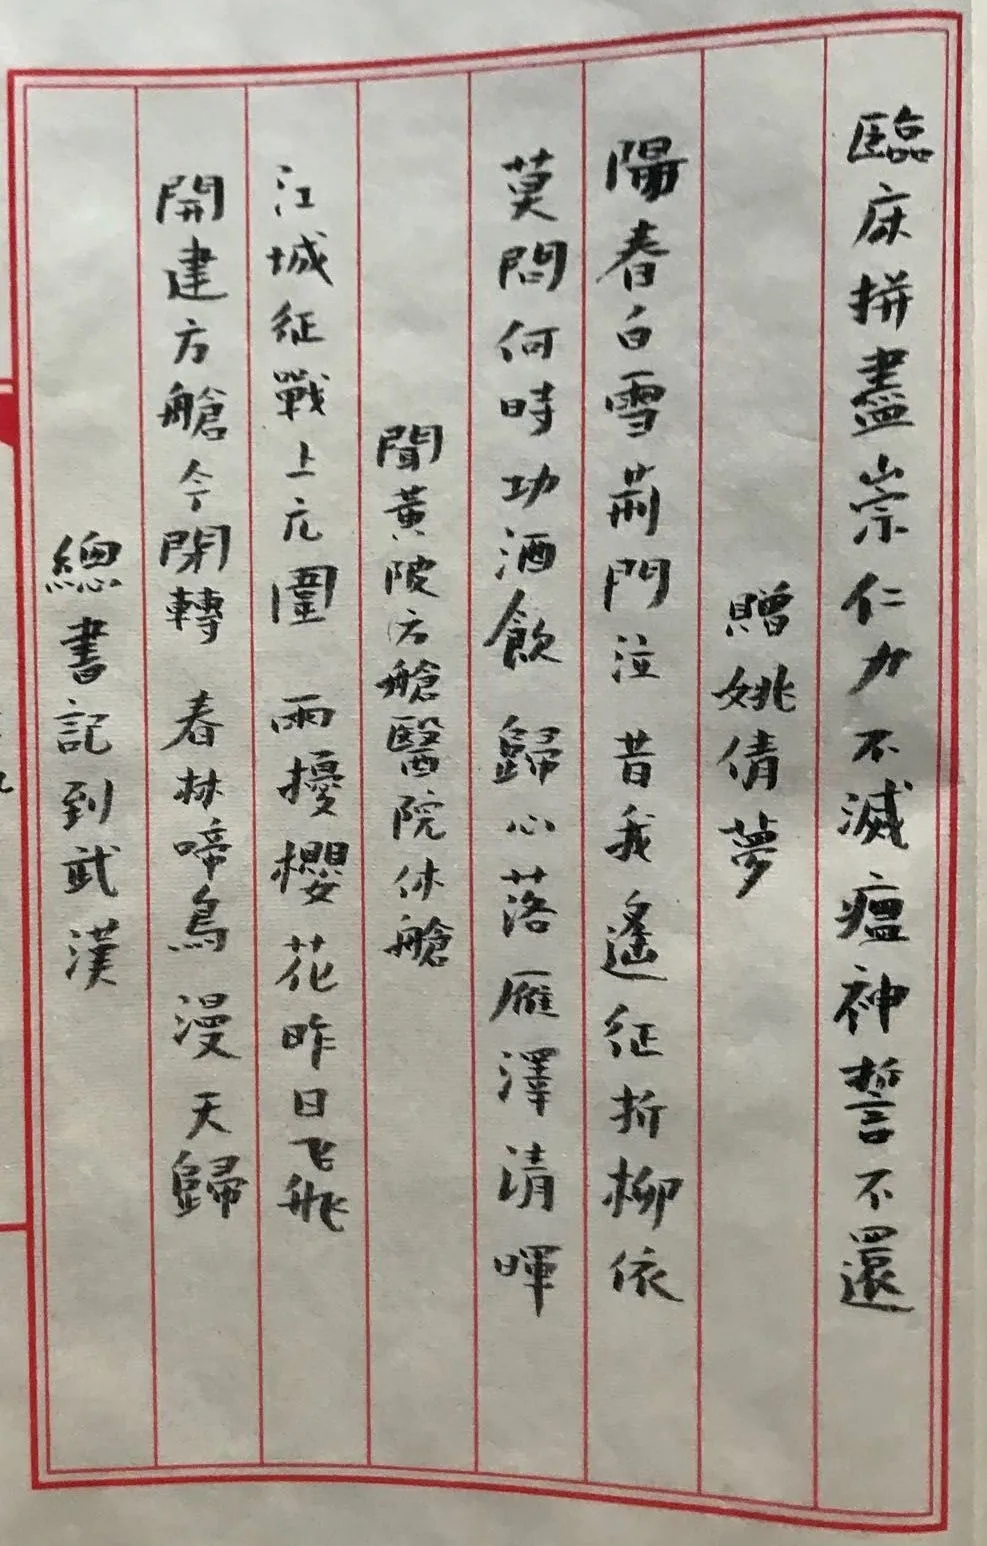 臨床拼盡崇仁力不滅瘟神誓不還
贈姚倩夢
陽春白雪荊門泣昔我遙征折柳依
莫問何時功酒飲歸心落雁澤清暉
聞黃陂方艙醫院休艙
江城征戰上元圍雨擾櫻花昨日飞飛
開建方艙今閉轉春林啼鳥漫天歸
總書記到武漢